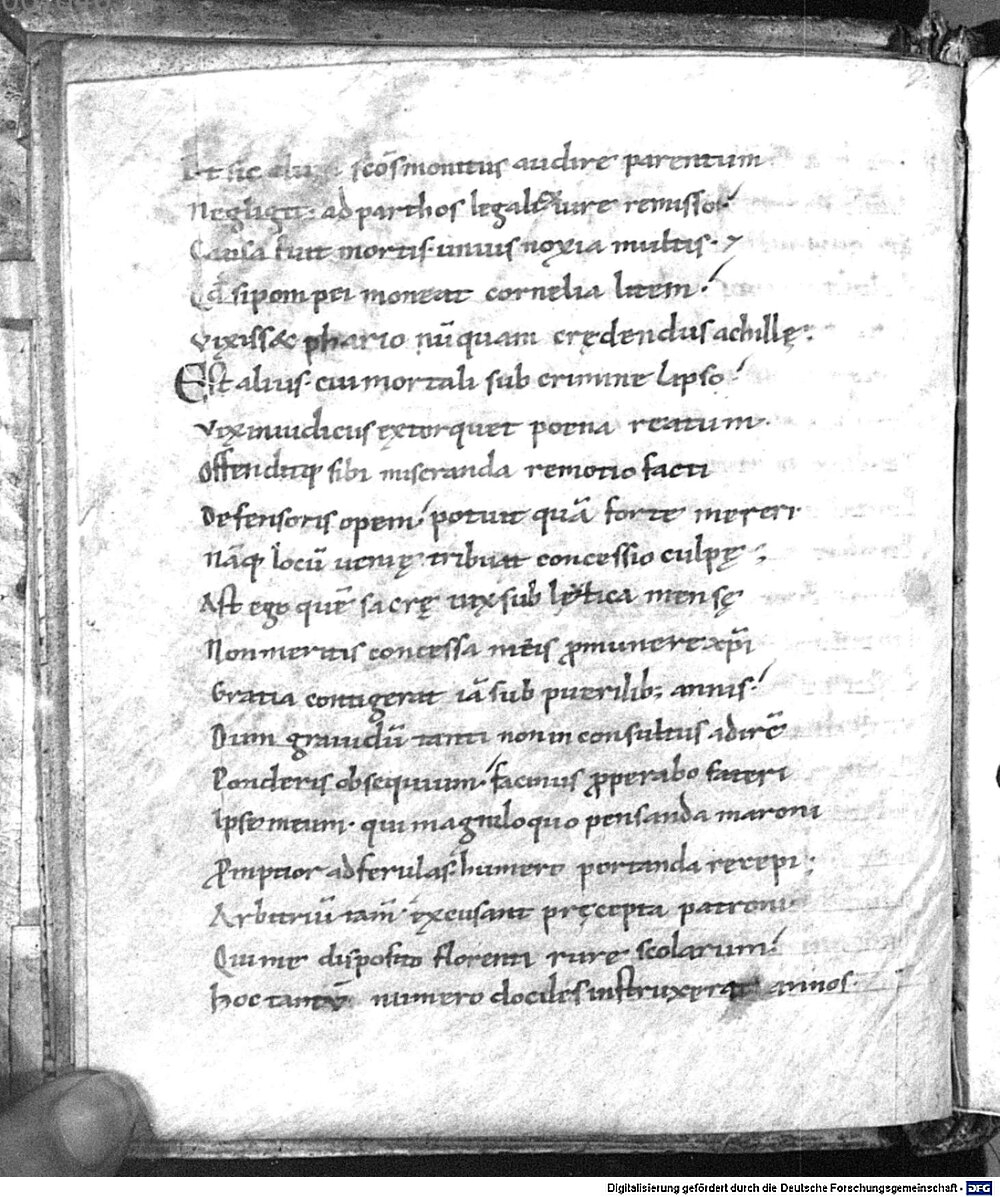 Et sic scōs monitus audire parentum
Negligit: ad parthos legali iure remisso:
Causa fuit mortis· unius noxia multis·
Qđ si pompei moneat cornelia litem·
vixiss& phario nūquam credendus achillę:
Est alius· cui mortali sub crimine lapso
vix inuidicus extorquet poena reatum·
Offenditq; sibi miseranda remotio facti
Defensoris opem· potuit quā forte mereri
Nāq; locū uenię tribuat concessio culpę;
Ast ego quē sacrę uix sub lactica mensę
Non meritis concessa meis p munere xp̄i
Gratia contigerat iā sub puerilib; annis·
Dum grauidū tanti non inconsultus adirē
Ponderis obsequium· facinus pperabo fateri
Ipse meum· qui magniloquo pensanda maroni
Pmptior ad ferulas· humero portanda recepi;
Arbitriū tam̄ excusant pręcepta patroni
Qui me disposito florenti rure scolarum·
hoc numero dociles instruxerat annos·
Digitalisierung gefördert durch die Deutsche Forschungsgemeinschaft - DFG